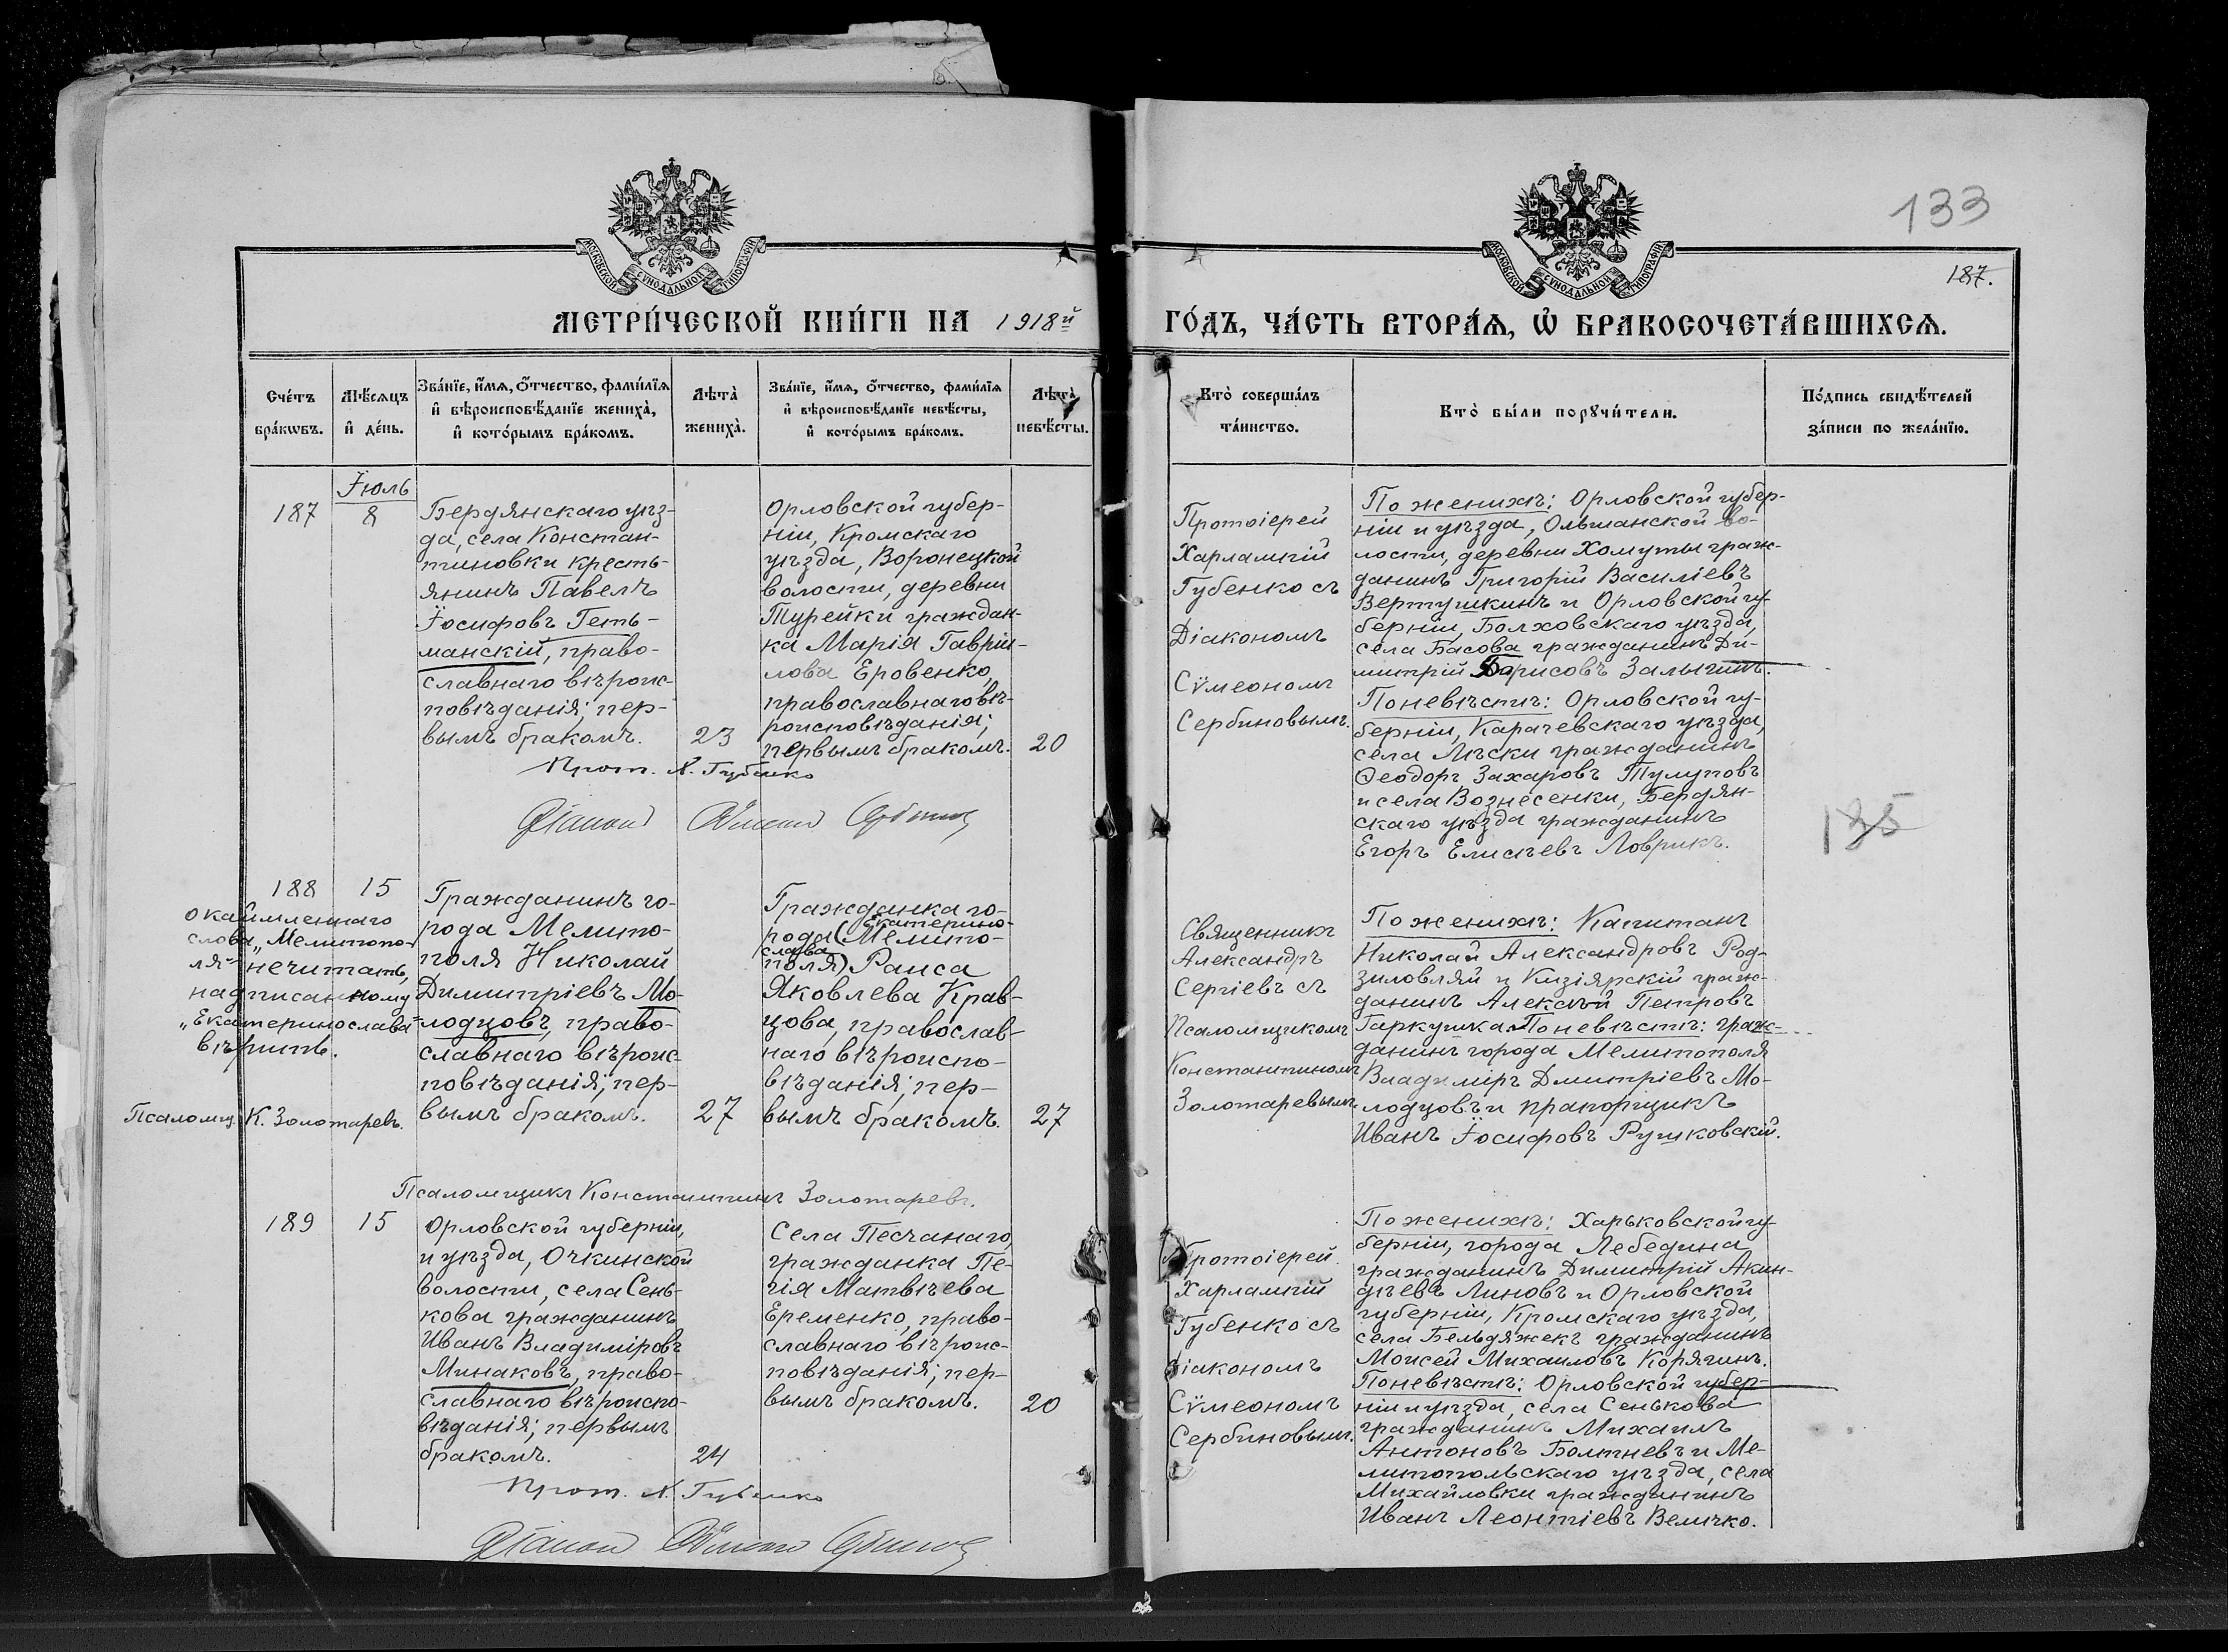 133
187.
МОСКОВСКОЙ СУНОДАЛЬНОЙ ТИПОГРАФІИ
МОСКОВСКОЙ СУНОДАЛЬНОЙ ТИПОГРАФІИ
МЕТРИ́ЧЕСКОЙ КНИ́ГИ НА 1918й
ГО́ДЪ, ЧА́СТЬ ВТОРА́Я, Ѽ БРАКОСОЧЕТА́ВШИХСЯ.
Сче́тъ
бра́кѡвъ.
Мѣ́сяцъ
и҆ де́нь.
Зва́нїе, и҆́мя, о҆́тчество, фами́лїя
и҆ вѣроисповѣ́данїе жениха̀,
и҆ кото́рымъ бра́комъ.
Лѣта̀
жениха̀.
Зва́нїе, и҆́мя, о҆́тчество, фами́лїя
и҆ вѣроисповѣ́данїе невѣ́сты,
и҆ кото́рымъ бра́комъ.
Лѣта̀
невѣ́сты.
Кто̀ соверша́лъ
та́инство.
Кто̀ бы́ли порꙋчи́тели.
По́дпись свидѣ́телей
за́писи по жела́нїю.
187
Іюль
8
Бердянскаго уѣз-
да, села Констан-
тиновки кресть-
янинъ Павелъ
Іосифовъ Геть-
манскій, право-
славнаго вѣроис-
повѣданія; пер-
вымъ бракомъ.
23
Орловской губер-
ніи, Кромскаго
уѣзда, Воронецкой
волости, деревни
Турейки граждан-
ка Марія Гаврїи-
лова Еровенко,
православнаго вѣ-
роисповѣданія;
первымъ бракомъ.
20
Прот. Х. Губенко
Діаконъ
Протоіерей
Харлампій
Губенко съ
Діакономъ
Сѵмеономъ
Сербиновымъ.
По женихѣ: Орловской губер-
ніи и уѣзда, Ольшанской во-
лости, деревни Хомуты граж-
данинъ Григорій Василіевъ
Вертушкинъ и Орловской гу-
берніи, Болховскаго уѣзда,
села Басова гражданинъ Ди-
митрій Борисовъ Залыгинъ.
По невѣстѣ: Орловской гу-
берніи, Карачевскаго уѣзда,
села Лѣски гражданинъ
Ѳеодоръ Захаровъ Тулуповъ
и села Вознесенки, Бердян-
скаго уѣзда гражданинъ
Егоръ Елисѣевъ Ловрикъ.
185
188
15
окаймленнаго
слова „Мелитопо-
ля" не читать,
надписанному
„Екатеринослава"
вѣрить.
Псаломщ. К. Золотаревъ.
Гражданинъ го-
рода Мелито-
поля Николай
Димитріевъ Мо-
лодцовъ, право-
славнаго вѣроис-
повѣданія; пер-
вымъ бракомъ.
27
Гражданка го-
Екатерино-
рода (Мелито-
слава
поля) Раиса
Яковлева Крав-
цова, православ-
наго вѣроиспо-
вѣданія; пер-
вымъ бракомъ.
27
Псаломщикъ Константинъ Золотаревъ.
Священникъ
Александръ
Сергіевъ съ
Псаломщикомъ
Константиномъ
Золотаревымъ.
По женихѣ: Капитанъ
Николай Александровъ Род-
и Кизіярскій граж-
данинъ Алексѣй Петровъ
Гаркушка. По невѣстѣ: граж-
данинъ города Мелитополя
Владиміръ Дмитріевъ Мо-
лодцовъ и прапорщикъ
Иванъ Іосифовъ Рушковскій.
189
15
Орловской губерніи,
и уѣзда, Очкинской
волости, села Сень-
кова гражданинъ
Иванъ Владиміровъ
Минаковъ, право-
славнаго вѣроиспо-
вѣданія; первымъ
бракомъ.
24
Села Песчанаго,
гражданка Пе-
гія Матвѣева
Еременко, право-
славнаго вѣроис-
повѣданія; пер-
вымъ бракомъ.
20
Прот. Х. Губенко
Діаконъ
Протоіерей
Харлампій
Губенко съ
Діакономъ
Сѵмеономъ
Сербиновымъ.
По женихѣ: Харьковской гу-
берніи, города Лебедина
гражданинъ Димитрій Акин-
діевъ Линовъ и Орловской
губерніи, Кромскаго уѣзда,
села Бельдяжекъ гражданинъ
Моисей Михаиловъ Корягинъ.
По невѣстѣ: Орловской губер-
ніи и уѣзда, села Сенькова
гражданинъ Михаилъ
Антоновъ Болтневъ и Ме-
литопольскаго уѣзда, села
Михайловки гражданинъ
Иванъ Леонтіевъ Величко.